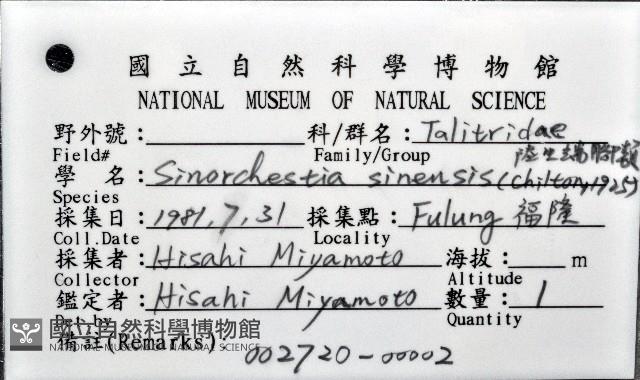 國立自然科學博物館
NATIONAL MUSEUM OF NATURAL SCIENCE
野外號: 科/群名: Talitridae
Field# Family/Group 陸生端腳類
學 名: Sinorchestia sinensis (Chilton, 1925)
Species
採集日: 1981, 7, 31 採集點: Fulung 福隆
Coll.Date Locality
採集者: Hisahi Miyamoto 海拔: m
Collector Altitude
鑑定者: Hisahi Miyamoto 數量: 1
Det.by Quantity
國立自然科學博物館
NATIONAL MUSEUM OF NATURAL SCIENCE
備註(Remarks): 002720-00002